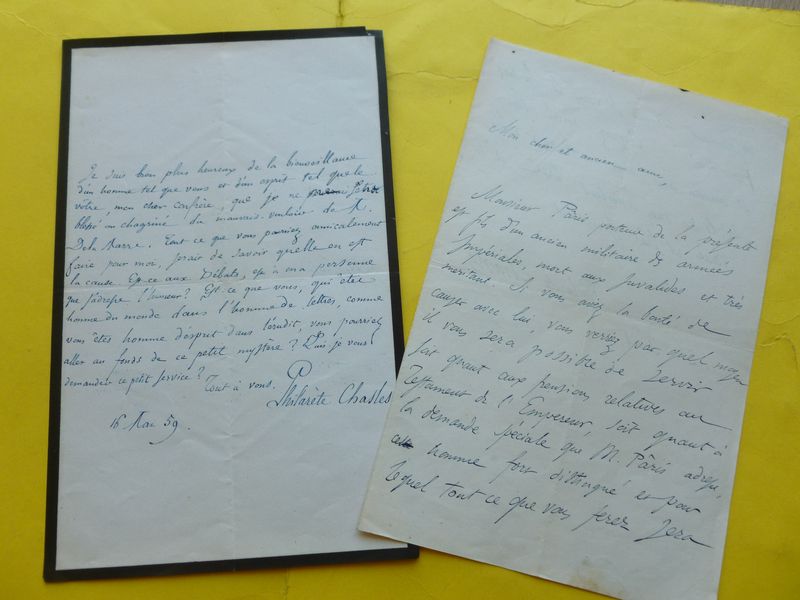 Je suis bien plus heureux de la bienveillance
d'un homme tel que vous et d'un esprit tel que le
vôtre, mon cher confrère, que je ne
blessé ou chagriné du mauvais vouloir de M.
Dela Marre. Tout ce que vous pourriez amicalement
faire pour moi, serait de savoir quelle en est
la cause. Est-ce aux Débats, est-ce à ma personne
que s'adresse l'humeur? Est-ce que vous, qui êtes
homme du monde dans l'homme de lettres, comme
vous êtes homme d'esprit dans l'érudit, vous pourriez
aller au fonds de ce petit mystère? Puis-je vous
demander ce petit service?
Tout à vous.
Philarète Chasles
16 Mai 59.
Mon cher et ancien ami,
Monsieur Pâris porteur de la présente
est fils d'un ancien militaire de armées
Impériales, mort aux Invalides et très
méritant. Si vous aviez la bonté de
causer avec lui, vous verriez par quel moyen
il vous sera possible de servir
soit quant aux pensions relatives au
Testament de l'Empereur, soit quant à
la demande spéciale que M. Pâris adresse,
homme fort distingué et pour
lequel tout ce que vous ferez sera